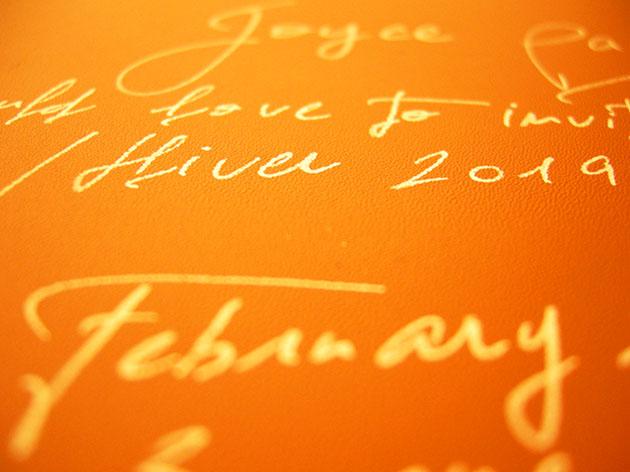 Joyce Pa
uld love to invit
/ Hiver 2019
February